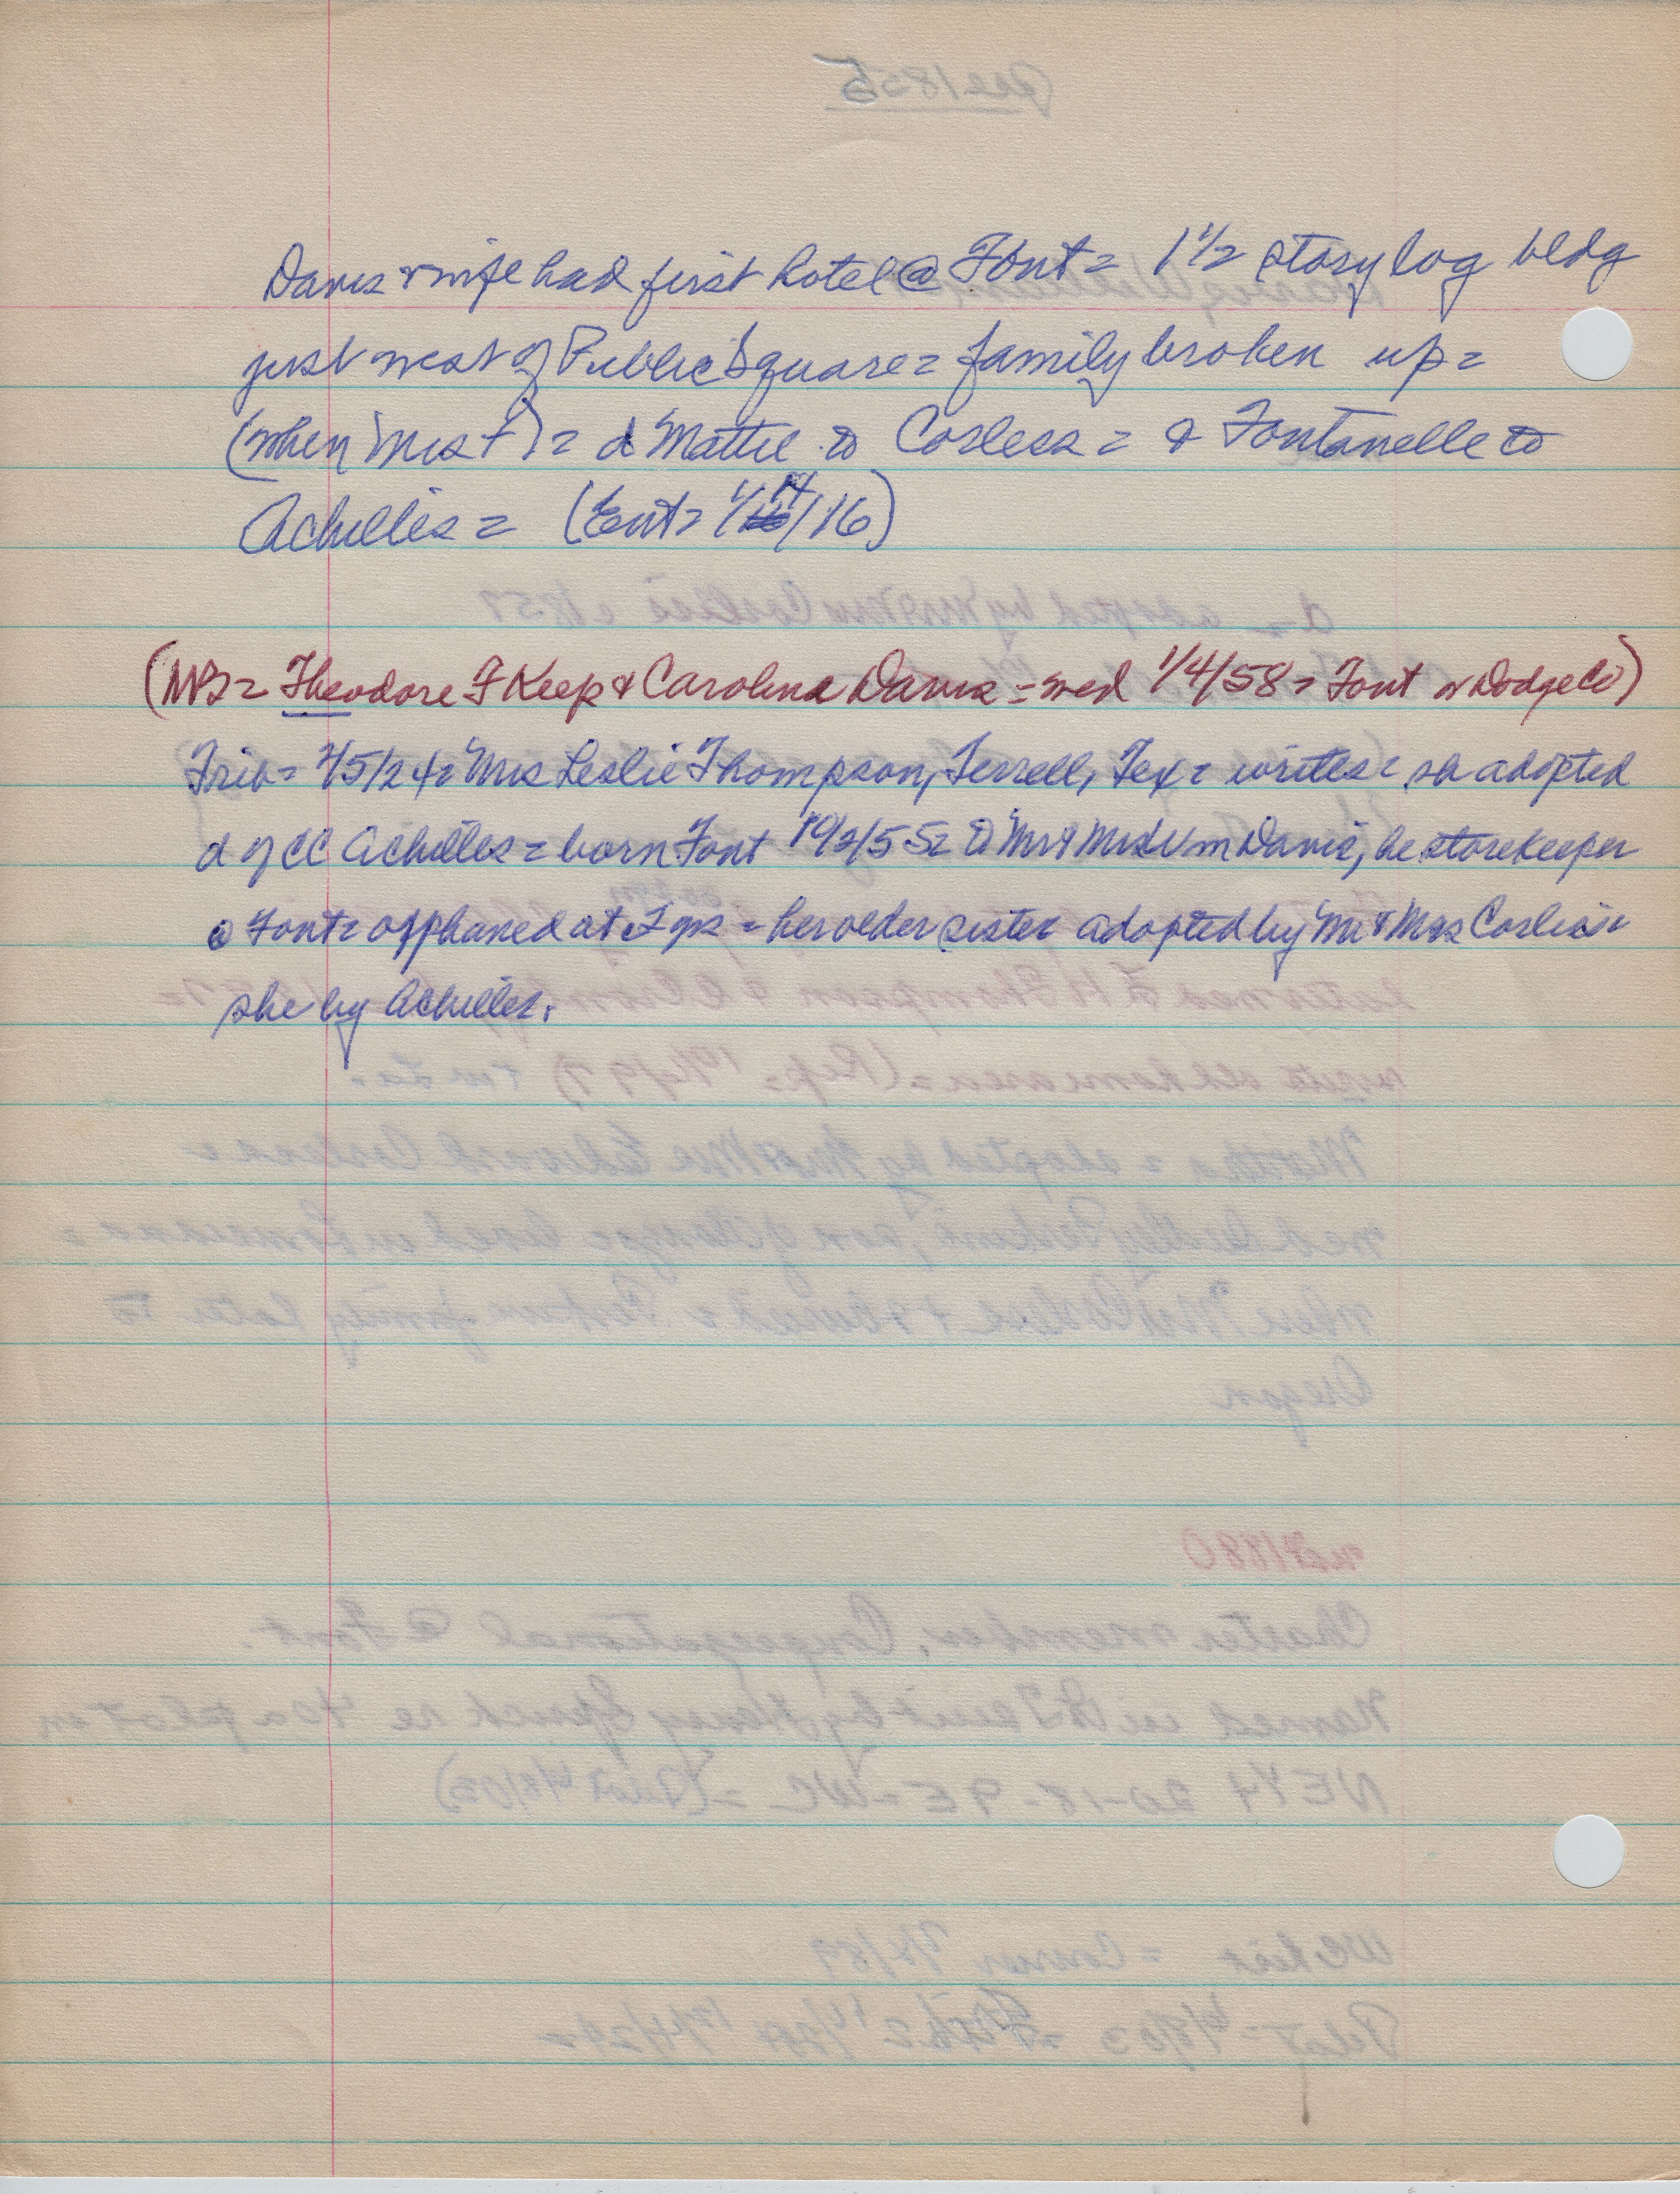 Davis & wife had first hotel @ Font = 1 1/2 story log bldg
just west of Public Square = family broken up =
(when Mrs +) = d Mattie to Corless = & Fontanelle to
Achilles = (Ent = 1/14/16)
(NBI = Theodore F Keep & Carolina Davis = med 1/4/58 = Font or Dodge Co)
Trib = 2/5/24 = Mrs Leslie Thompson, Terrell, Tex = writes = sh adopted
d of CC Achilles = born Font 10/2/55 = to Mr & Mrs Wm Davis, he storekeeper
@ Font = orphaned at 2 yrs = her older sister adopted by Mr & Mrs Corliss =
she by Achilles.